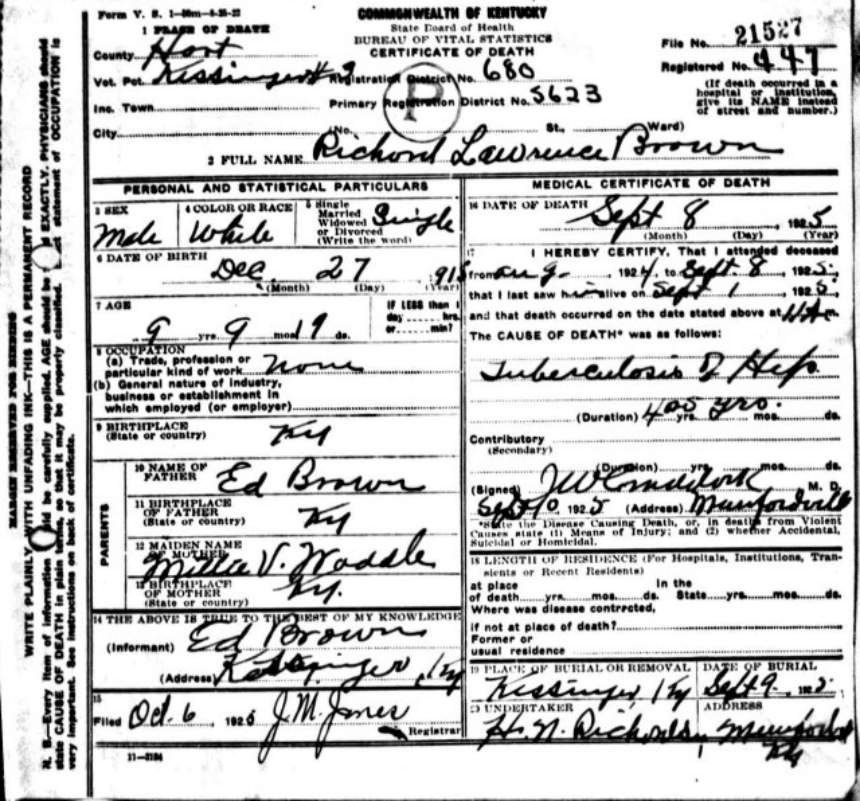 Form V. S. 1-50m-8-25-22
COMMONWEALTH OF KENTUCKY
State Board of Health
BUREAU OF VITAL STATISTICS
CERTIFICATE OF DEATH
File No. 21527
Registered No. 447
(If death occurred in a hospital or institution, give its NAME instead of street and number.)
1 PLACE OF DEATH
County Hart
Vot. Pct. Kessinger # 2 Registration District No. 680
P
Inc. Town Primary Registration District No. 5623
City (No. St., Ward)
2 FULL NAME Richard Lawrence Brown
PERSONAL AND STATISTICAL PARTICULARS
3 SEX Male
4 COLOR OR RACE White
5 Single Married Widowed or Divorced (Write the word) Single
6 DATE OF BIRTH Dec. 27
(Month) (Day) (Year)
7 AGE
9 yrs. 9 mos. 19 ds.
IF LESS than 1 day hrs. or min?
8 OCCUPATION
(a) Trade, profession or particular kind of work None
(b) General nature of industry, business or establishment in which employed (or employer)
9 BIRTHPLACE (State or country) Ky
PARENTS
10 NAME OF FATHER Ed Brown
11 BIRTHPLACE OF FATHER (State or country) Ky
12 MAIDEN NAME OF MOTHER Millie V. Waddle
13 BIRTHPLACE OF MOTHER (State or country) Ky.
14 THE ABOVE IS TRUE TO THE BEST OF MY KNOWLEDGE
(Informant) Ed Brown
(Address) Kessinger, Ky
15
Filed Oct. 6, 1925 J. M. Jones
Registrar
11-3184
MEDICAL CERTIFICATE OF DEATH
16 DATE OF DEATH Sept 8, 1925
(Month) (Day) (Year)
17 I HEREBY CERTIFY, That I attended deceased
from Aug., 1924, to Sept. 8, 1925,
that I last saw him alive on Sept 1, 1925,
and that death occurred on the date stated above at m.
The CAUSE OF DEATH* was as follows:
Tuberculosis of Hip
(Duration) yrs. mos. ds.
Contributory
(Secondary)
(Duration) yrs. mos. ds.
(Signed) J W Craddock M. D.
Sept 10, 1925 (Address) Munfordville
*State the Disease Causing Death, or, in deaths from Violent Causes state (1) Means of Injury; and (2) whether Accidental, Suicidal or Homicidal.
18 LENGTH OF RESIDENCE (For Hospitals, Institutions, Transients or Recent Residents)
at place of death yrs. mos. ds. In the State yrs. mos. ds.
Where was disease contracted,
if not at place of death?
Former or usual residence
19 PLACE OF BURIAL OR REMOVAL Kessinger, Ky
DATE OF BURIAL Sept 9, 1925
20 UNDERTAKER H. N. Richardson
ADDRESS Munford Ky
MARGIN RESERVED FOR BINDING
WRITE PLAINLY WITH UNFADING INK—THIS IS A PERMANENT RECORD
N. B.—Every item of information should be carefully supplied. AGE should be EXACTLY. PHYSICIANS should
state CAUSE OF DEATH in plain terms, so that it may be properly classified. statement of OCCUPATION is
very important. See instructions on back of certificate.